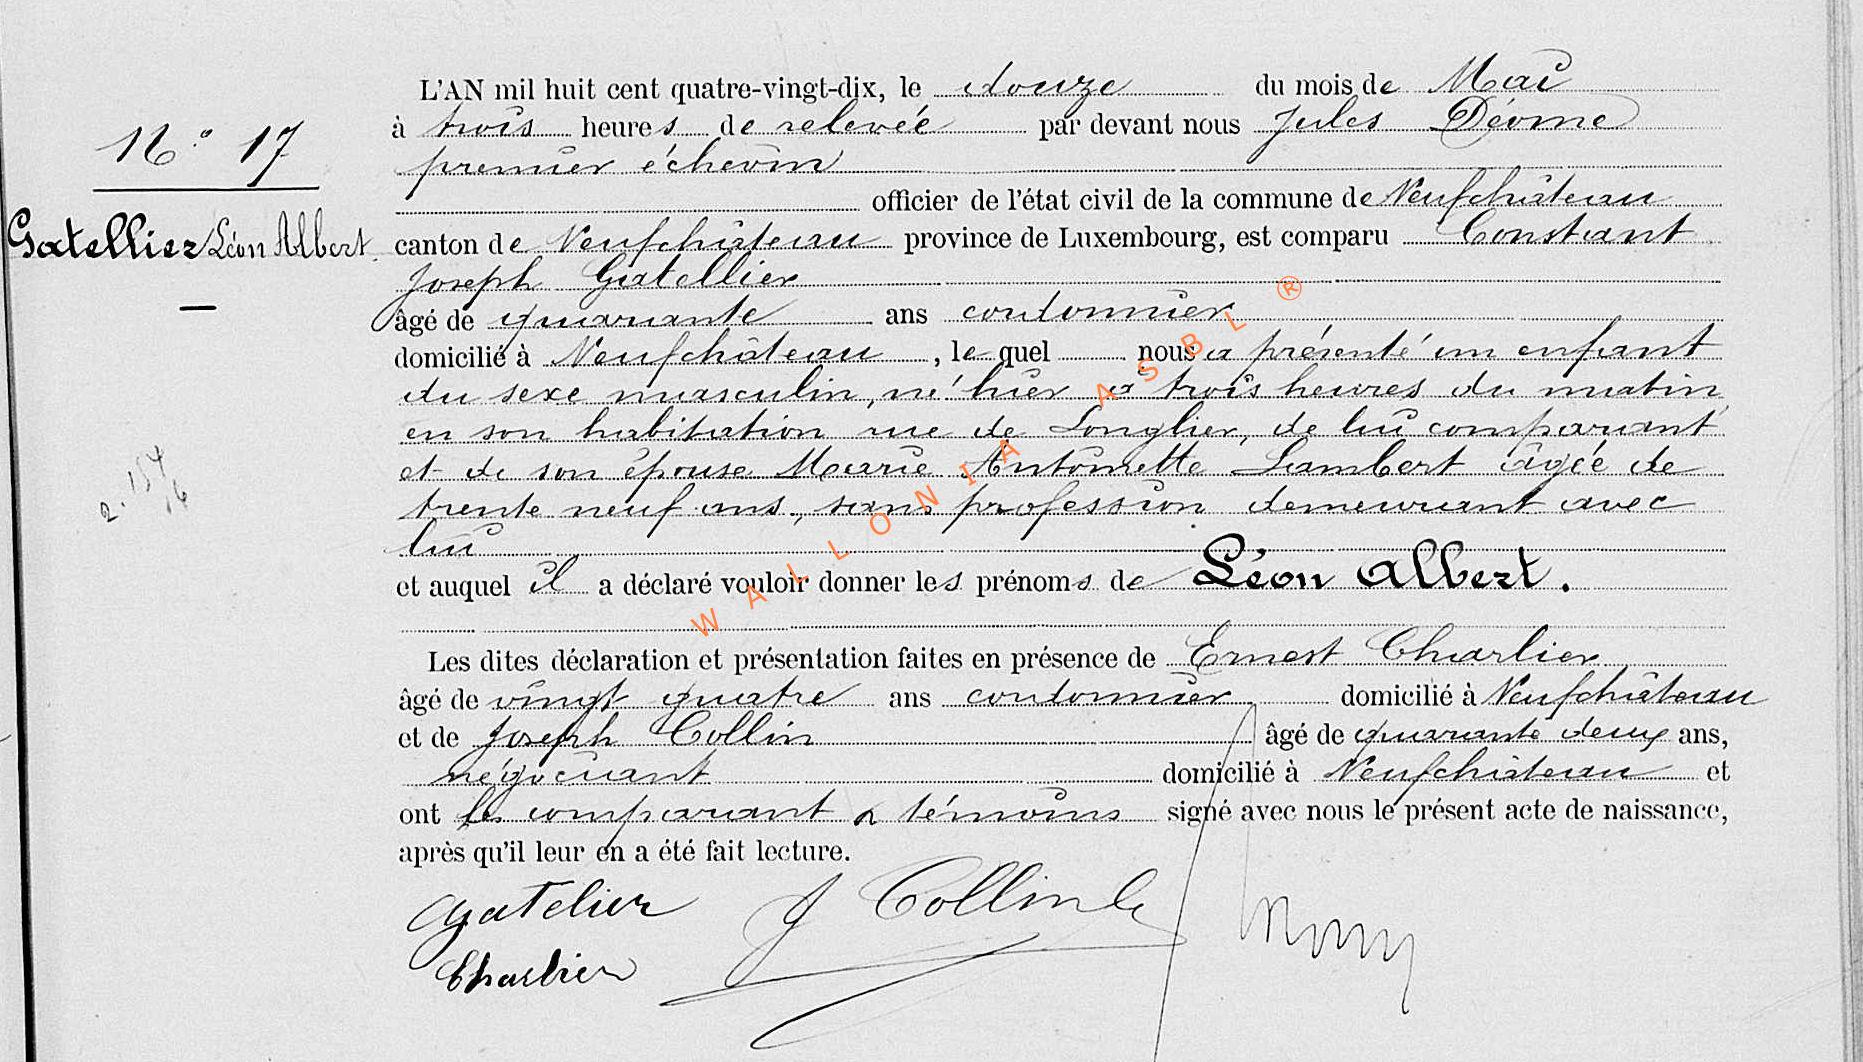 N° 17
Gatellier Léon Albert
L'AN mil huit cent quatre-vingt-dix, le douze du mois de Mai
à trois heures de relevée par devant nous Jules Déome
premier échevin
officier de l'état civil de la commune de Neufchâteau
canton de Neufchâteau province de Luxembourg, est comparu Constant
Joseph Gatellier
âgé de quarante ans cordonnier
domicilié à Neufchâteau, le quel nous a présenté un enfant
du sexe masculin, né hier à trois heures du matin
en son habitation rue de Longlier, de lui comparant
et de son épouse Marie Antoinette Lambert âgée de
trente neuf ans, sans profession demeurant avec
lui
et auquel il a déclaré vouloir donner les prénoms de Léon Albert.
Les dites déclaration et présentation faites en présence de Ernest Charlier
âgé de vingt quatre ans cordonnier domicilié à Neufchâteau
et de Joseph Collin âgé de quarante deux ans,
négociant domicilié à Neufchâteau et
ont les comparant & témoins signé avec nous le présent acte de naissance,
après qu'il leur en a été fait lecture.
Gatelier J Collin
Charlier
2. 154
WALLONIA ASBL ®